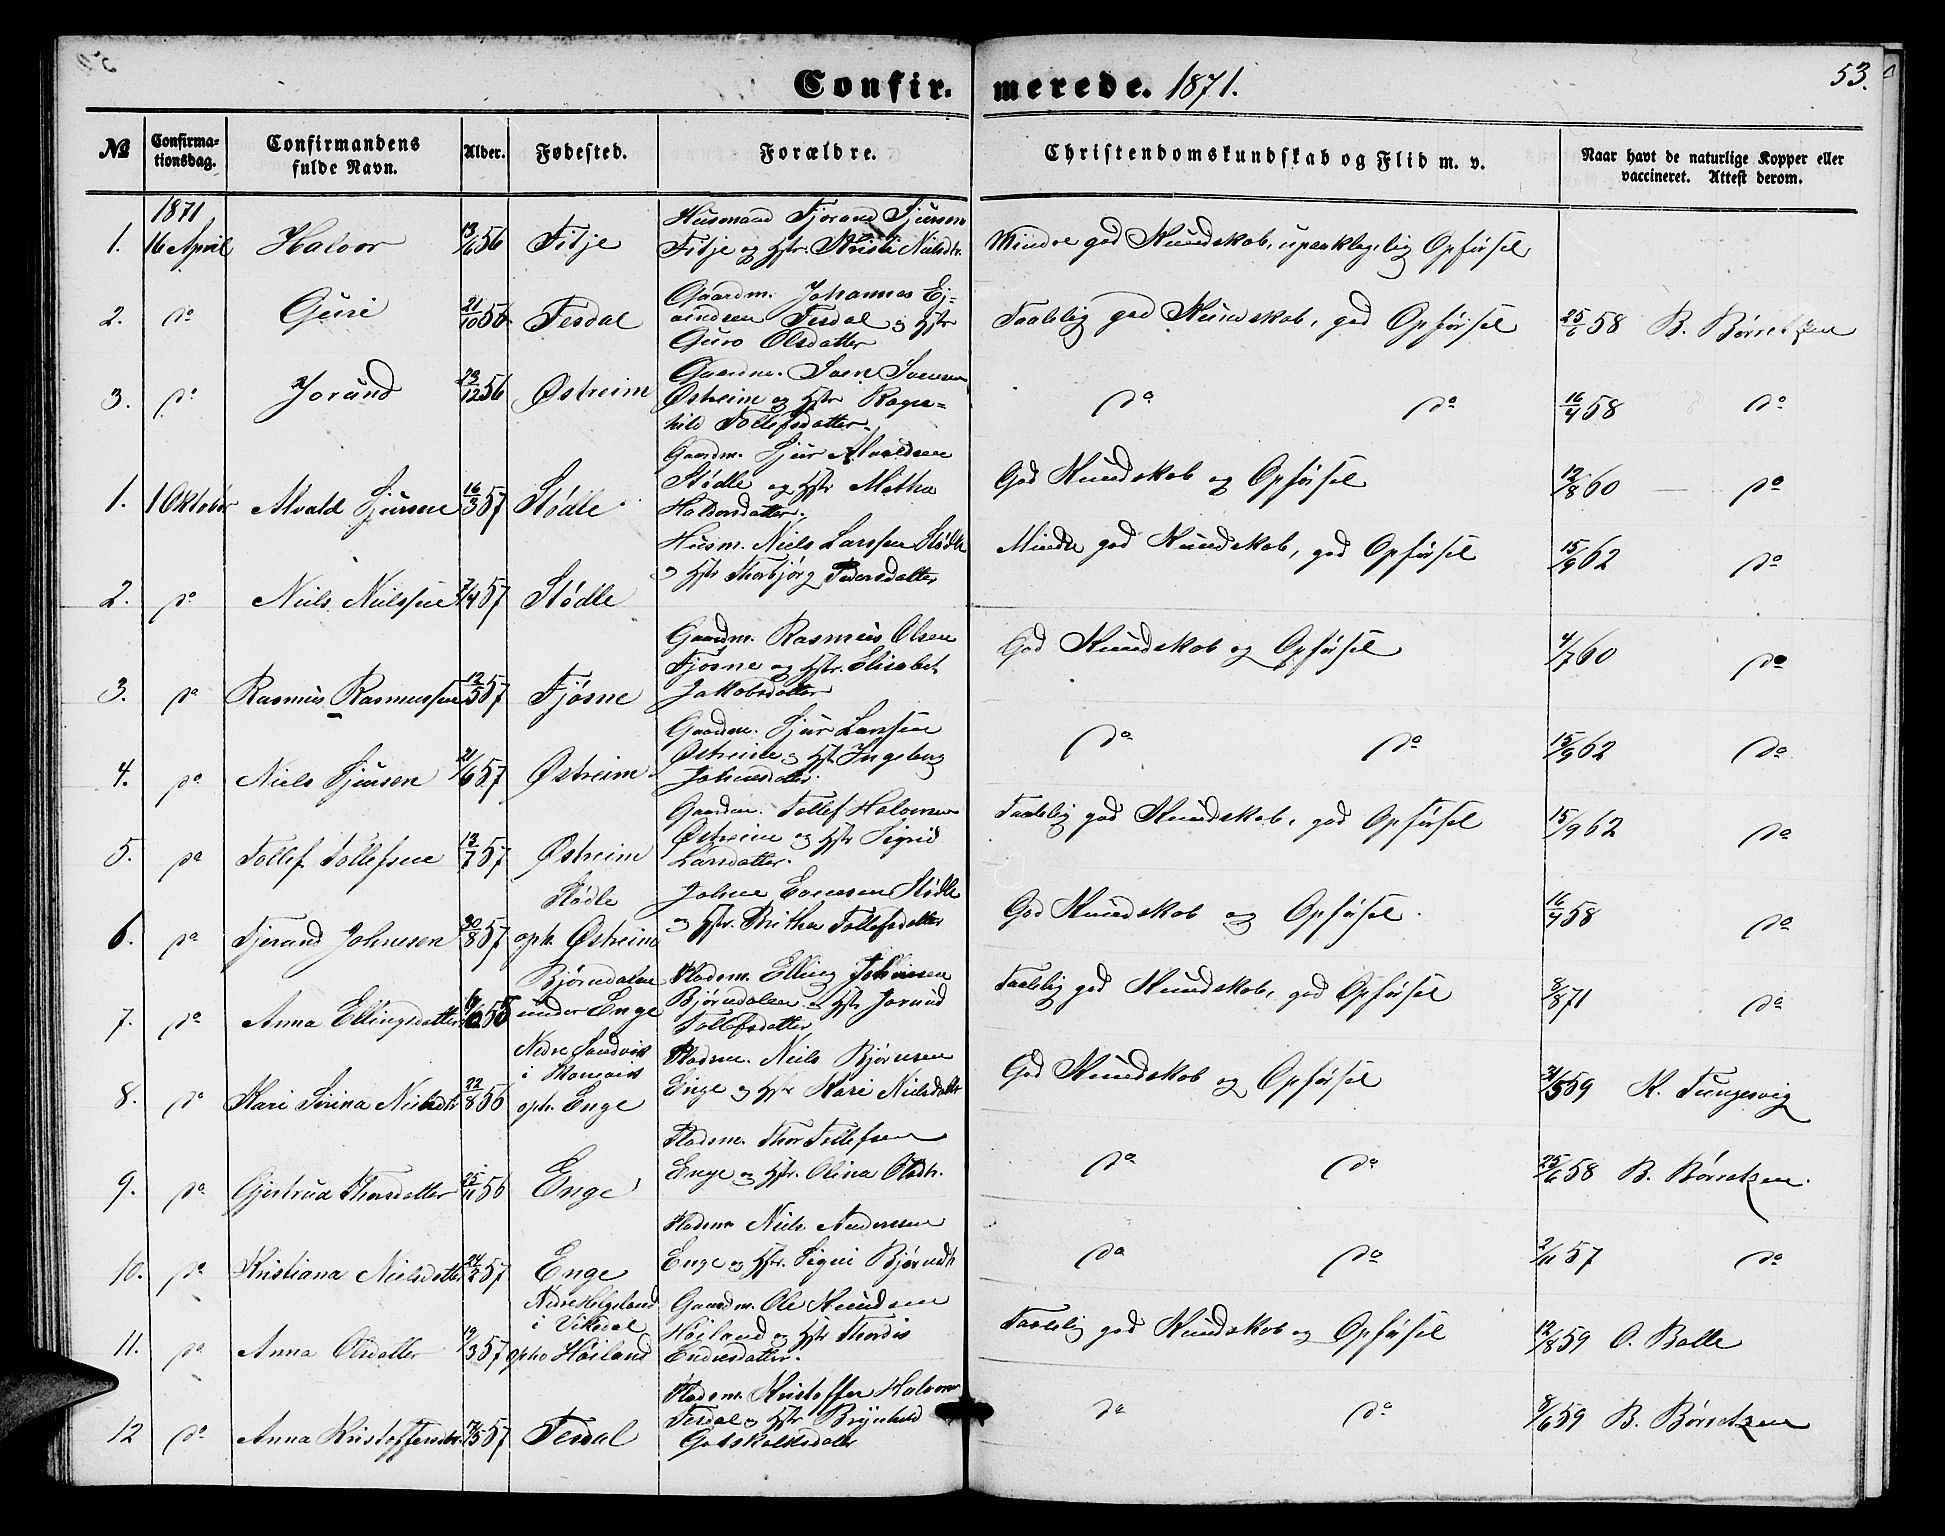 Confirmerede. 1871.
53.
№
Confirmationsdag.
Confirmandens fulde Navn.
Alder.
Fødested.
Forældre.
Christendomskundskab og Flid m. v.
Naar havt de naturlige Kopper eller vaccineret. Attest derom.
1871
1. 16 April Halvor 13/6 56 Fitje
Husmand Tjerand Sjursen
Fitje og Hstr. Kristi Nielsdtr.
Mindre god Kundskab, upaaklagelig Opførsel
2. do Guri 21/10 56 Tesdal
Gaardm. Johannes Ej-
vindsen Tesdal og Hstr
Guro Olsdatter
Taalelig god Kundskab, god Opførsel 25/6 58 B. Børretzen
3. do Jorand 23/12 56 Østreim
Gaardm. Sven Svensen
Østreim og Hstr Ragn-
hild Tollefsdatter.
do do 16/4 58 do
1. 1 Oktober Alvald Sjursen 16/3 57 Stødle
Gaardm. Sjur Alvaldsen
Stødle og Hstr Metha
Haldorsdatter.
God Kundskab og Opførsel 12/8 60 do
2. do Niels Nielssen 7/4 57 Stødle
Husm. Niels Larssen Stødle
og Hstr Thorbjørg Pedersdatter
Mindre god Kundskab, god Opførsel 15/9 62 do
3. do Rasmus Rasmussen 12/5 57 Fjøsne
Gaardm. Rasmus Olsen
Fjøsne og Hstr. Elisabet
Jakobsdatter
God Kundskab og Opførsel 4/7 60 do
4. do Niels Sjursen 21/6 57 Østreim
Gaardm. Sjur Larssen
Østreim og Hstr Ingeborg
Johnesdatter.
do do 15/9 62 do
5. do Tollef Tollefsen 13/7 57 Østreim
Gaardm. Tollef Halvorsen
Østreim og Hstr Sigrid
Larsdatter.
Taalelig god Kundskab, god Opførsel 15/9 62 do
6. do Tjerand Johnesen 30/8 57 Stødle
oph. Østreim
Johne Stødle
og Hstr. Britha Tollefsdatter
God Kundskab og Opførsel. 16/4 58 do
7. do Anna Ellingsdatter 55 Bjørndalen
under Enge
Pladsm. Elling Johnsen
Bjørndalen og Hstr Jorund
Tollefsdatter
Taalelig god Kundskab, god Opførsel 3/8 71 do
8. do Kari Serina Nielsdtr 22/8 56 Nedre Sandvik
i
oph. Enge
Pladsm. Niels Bjørnsen
Enge og Hstr Kari Nielsdatter
God Kundskab og Opførsel 31/5 59 K. Tungesvig
9. do Gjertrud Thorsdatter 25/11 56 Enge
Pladsm. Thor Tollefsen
Enge og Hstr. Olina Olsdtr.
do do 25/6 58 B. Børretzen.
10. do Kristiana Nielsdatter 24/2 57 Enge
Pladsm Niels Andersen
Enge og Hstr. Signi Bjørnsdtr
do do 2/11 57 do
11. do Anna Olsdatter 19/3 57 Nedre Helgeland
i Vikedal
opho Høiland
Gaardm. Ole Knudsen
Høiland og Hstr Thordis
Endresdatter.
Taalelig god Kundskab og Opførsel 12/8 59 O. Balle
12 do Anna Kristoffersdtr. 17/5 57 Tesdal
Pladsm. Kristoffer Halvors
Tesdal og Hstr Brynhild
Godskalksdatter
do do 8/6 59 B. Børretzen